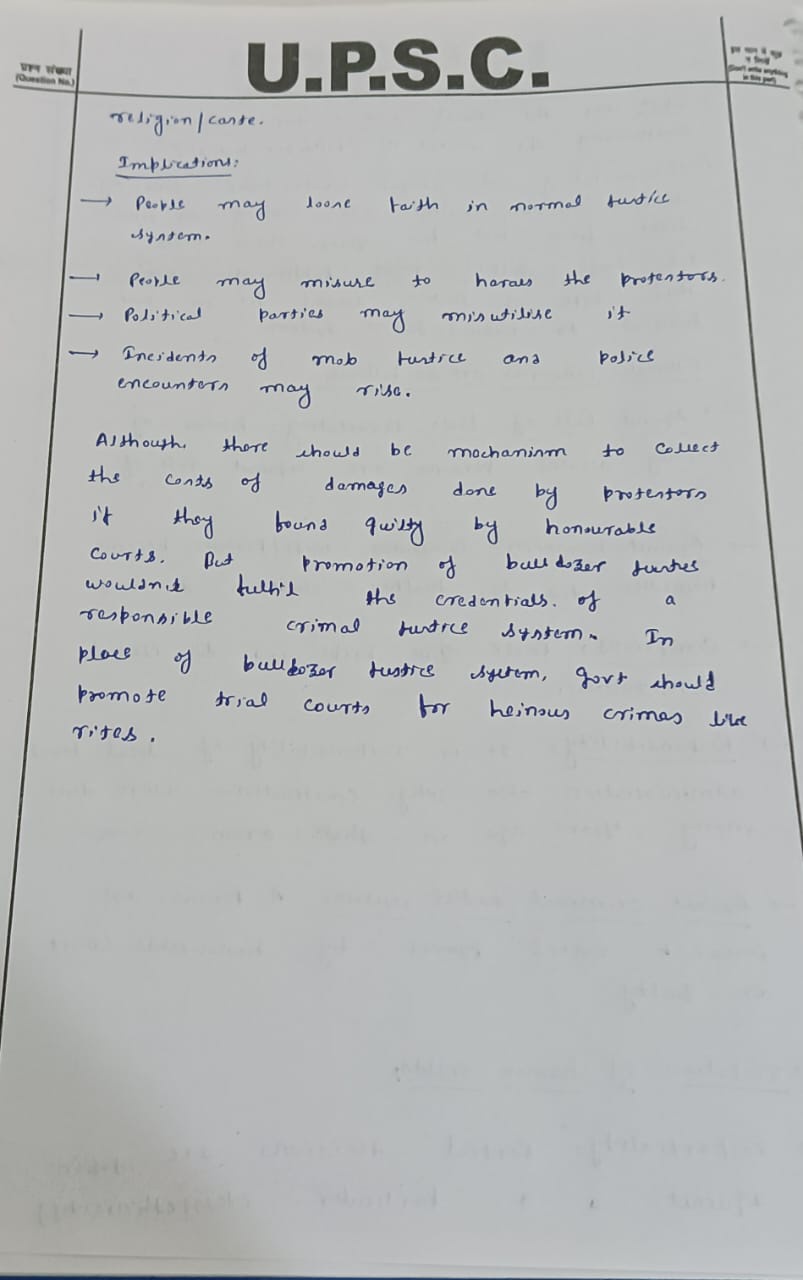 U.P.S.C.
प्रश्न संख्या
(Question No.)
इस भाग में कुछ
न लिखें
(Don't write anything
in this part)
religion/caste.
Implications:
→ People may loose faith in normal justice
system.
→ People may misuse to harass the protestors.
→ Political parties may misutilise it
→ Incidents of mob justice and police
encounters may rise.
Although there should be mechanism to collect
the costs of damages done by protestors
if they found guilty by honourable
Courts. But promotion of bulldozer justice
wouldn't fulfil the credentials of a
responsible crimal justice system. In
place of bulldozer justice system, govt should
promote trial courts for heinous crimes like